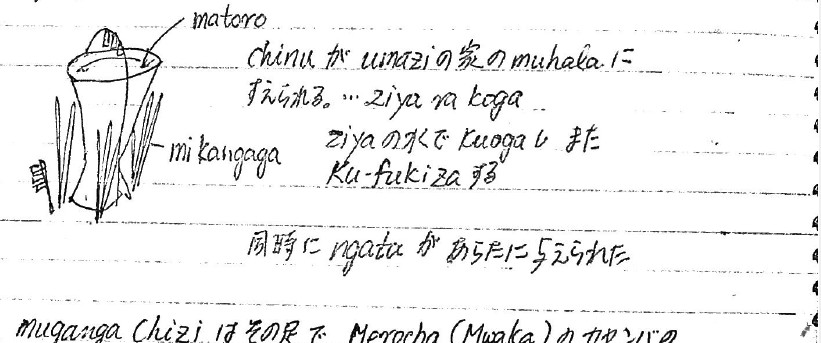 matoro
chinu が umaziの家の muhala に
すえられる。… ziya ra koga
mikangaga
ziyaの水で kuogaし また
Ku-fukiza する
同時に ngata が あらたに与えられた
muganga Chizi はその足で Merocha (Mwaka) のカヤンバの